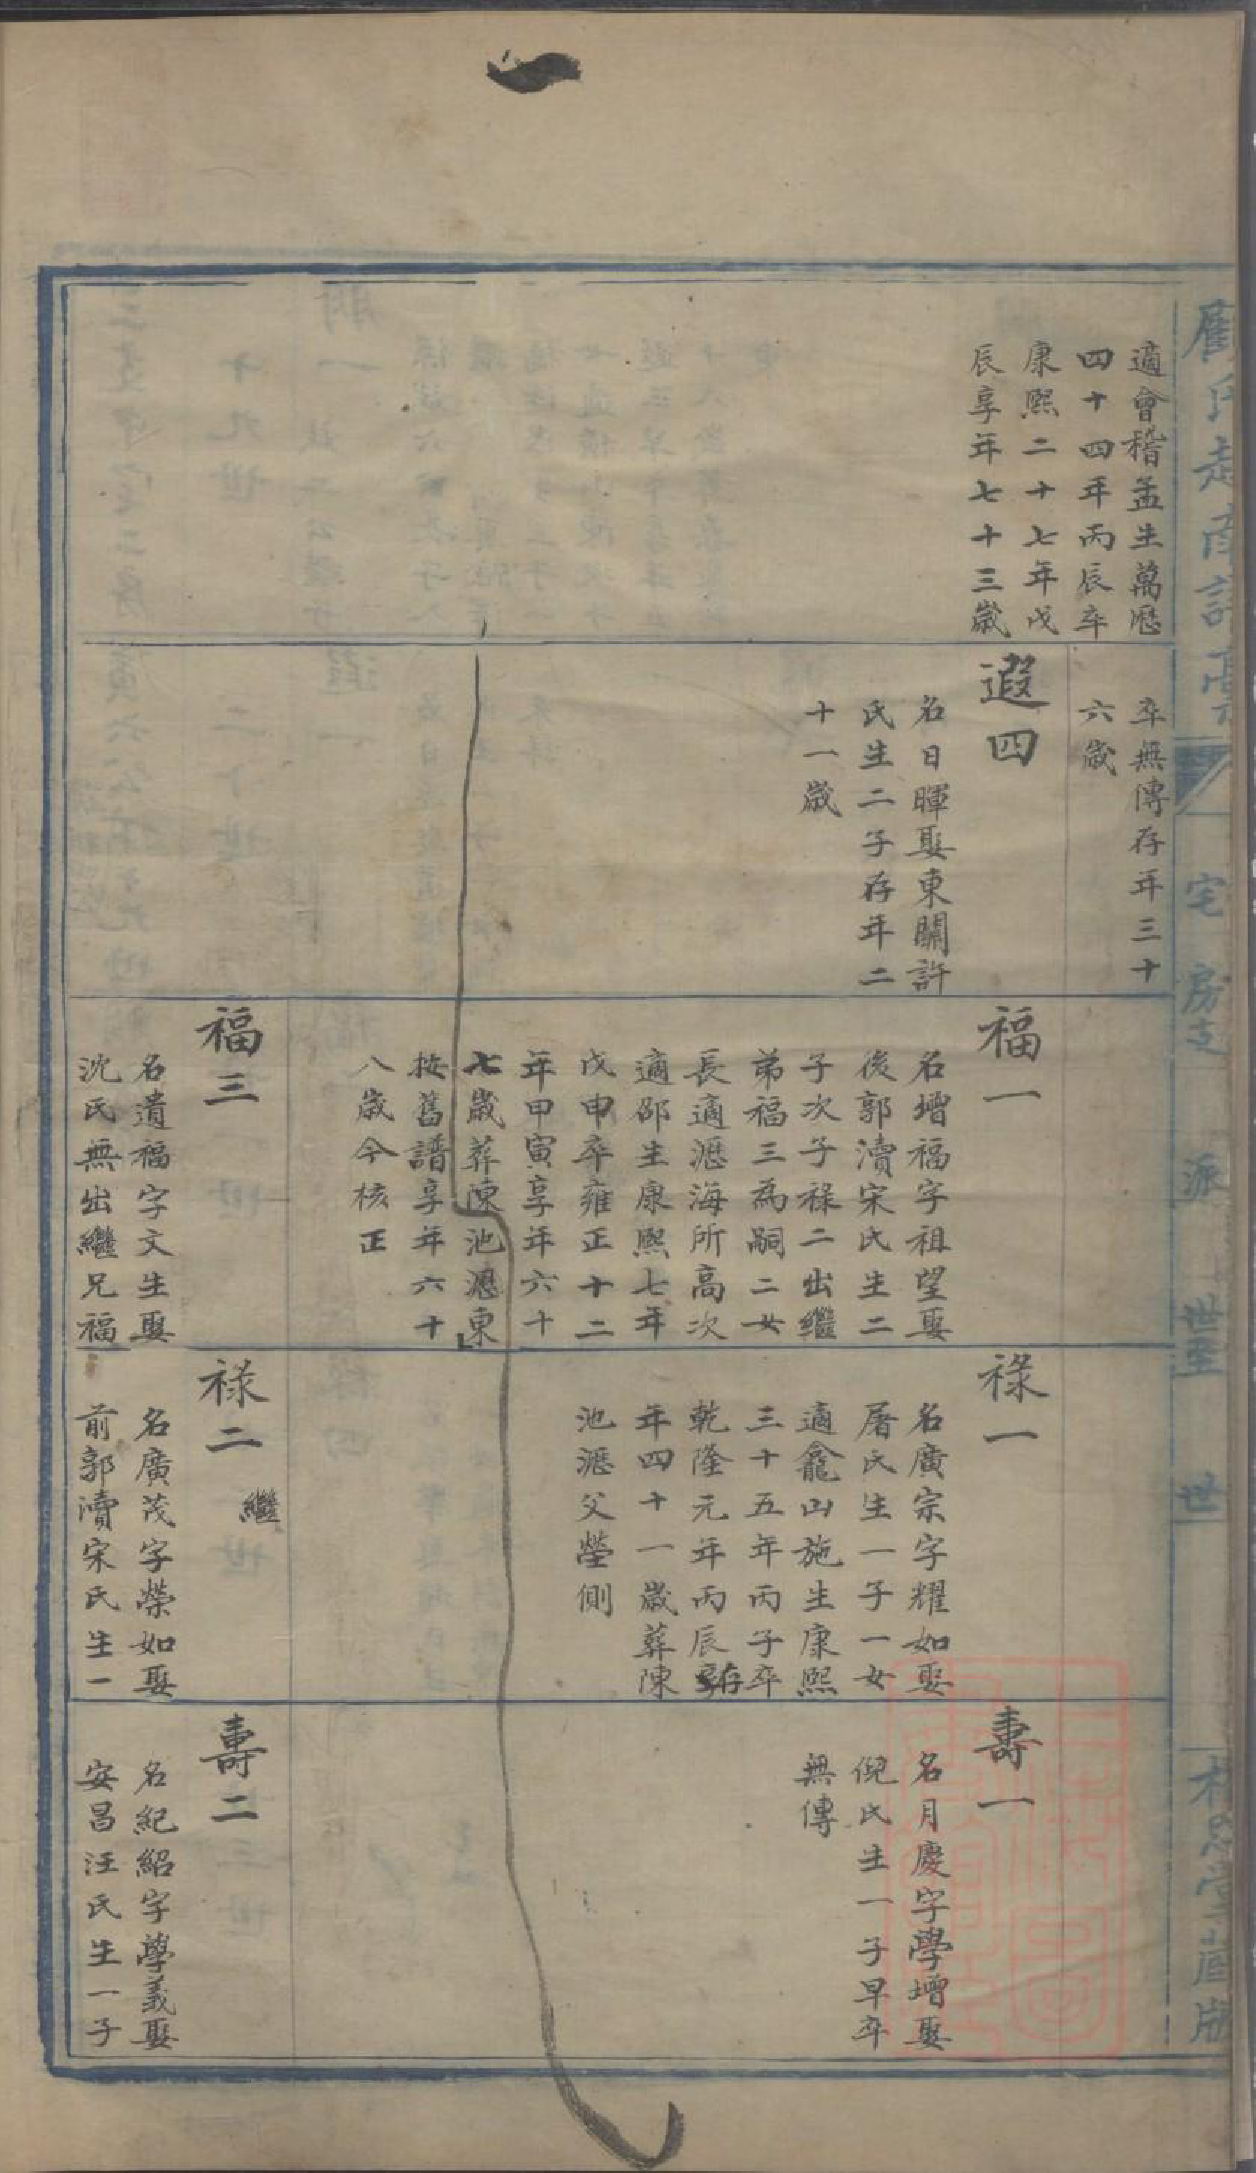 適會稽孟生萬厯
四十四年丙辰卒
康熙二十七年戊
辰享年七十三歲
卒無傳存年三十
六歲
遐四
名日暉娶東關許
氏生二子存年二
十一歲
福一
名增福字祖望娶
後郭瀆宋氏生二
子次子祿二出繼
弟福三為嗣二女
長適瀝海所高次
適邵生康熙七年
戊申卒雍正十二
年甲寅享年六十
七歲葬陳池漊東
按舊譜享年六十
八歲今核正
福三
名遺福字文生娶
沈氏無出繼兄福
祿一
名廣宗字耀如娶
屠氏生一子一女
適龕山施生康熙
三十五年丙子卒
乾隆元年丙辰存
年四十一歲葬陳
池漊父塋側
祿二 繼
名廣茂字榮如娶
前郭瀆宋氏生一
壽一
名月慶字學增娶
倪氏生一子早卒
無傳
壽二
名紀紹字學義娶
安昌汪氏生一子
宅 房支 派 世至 世